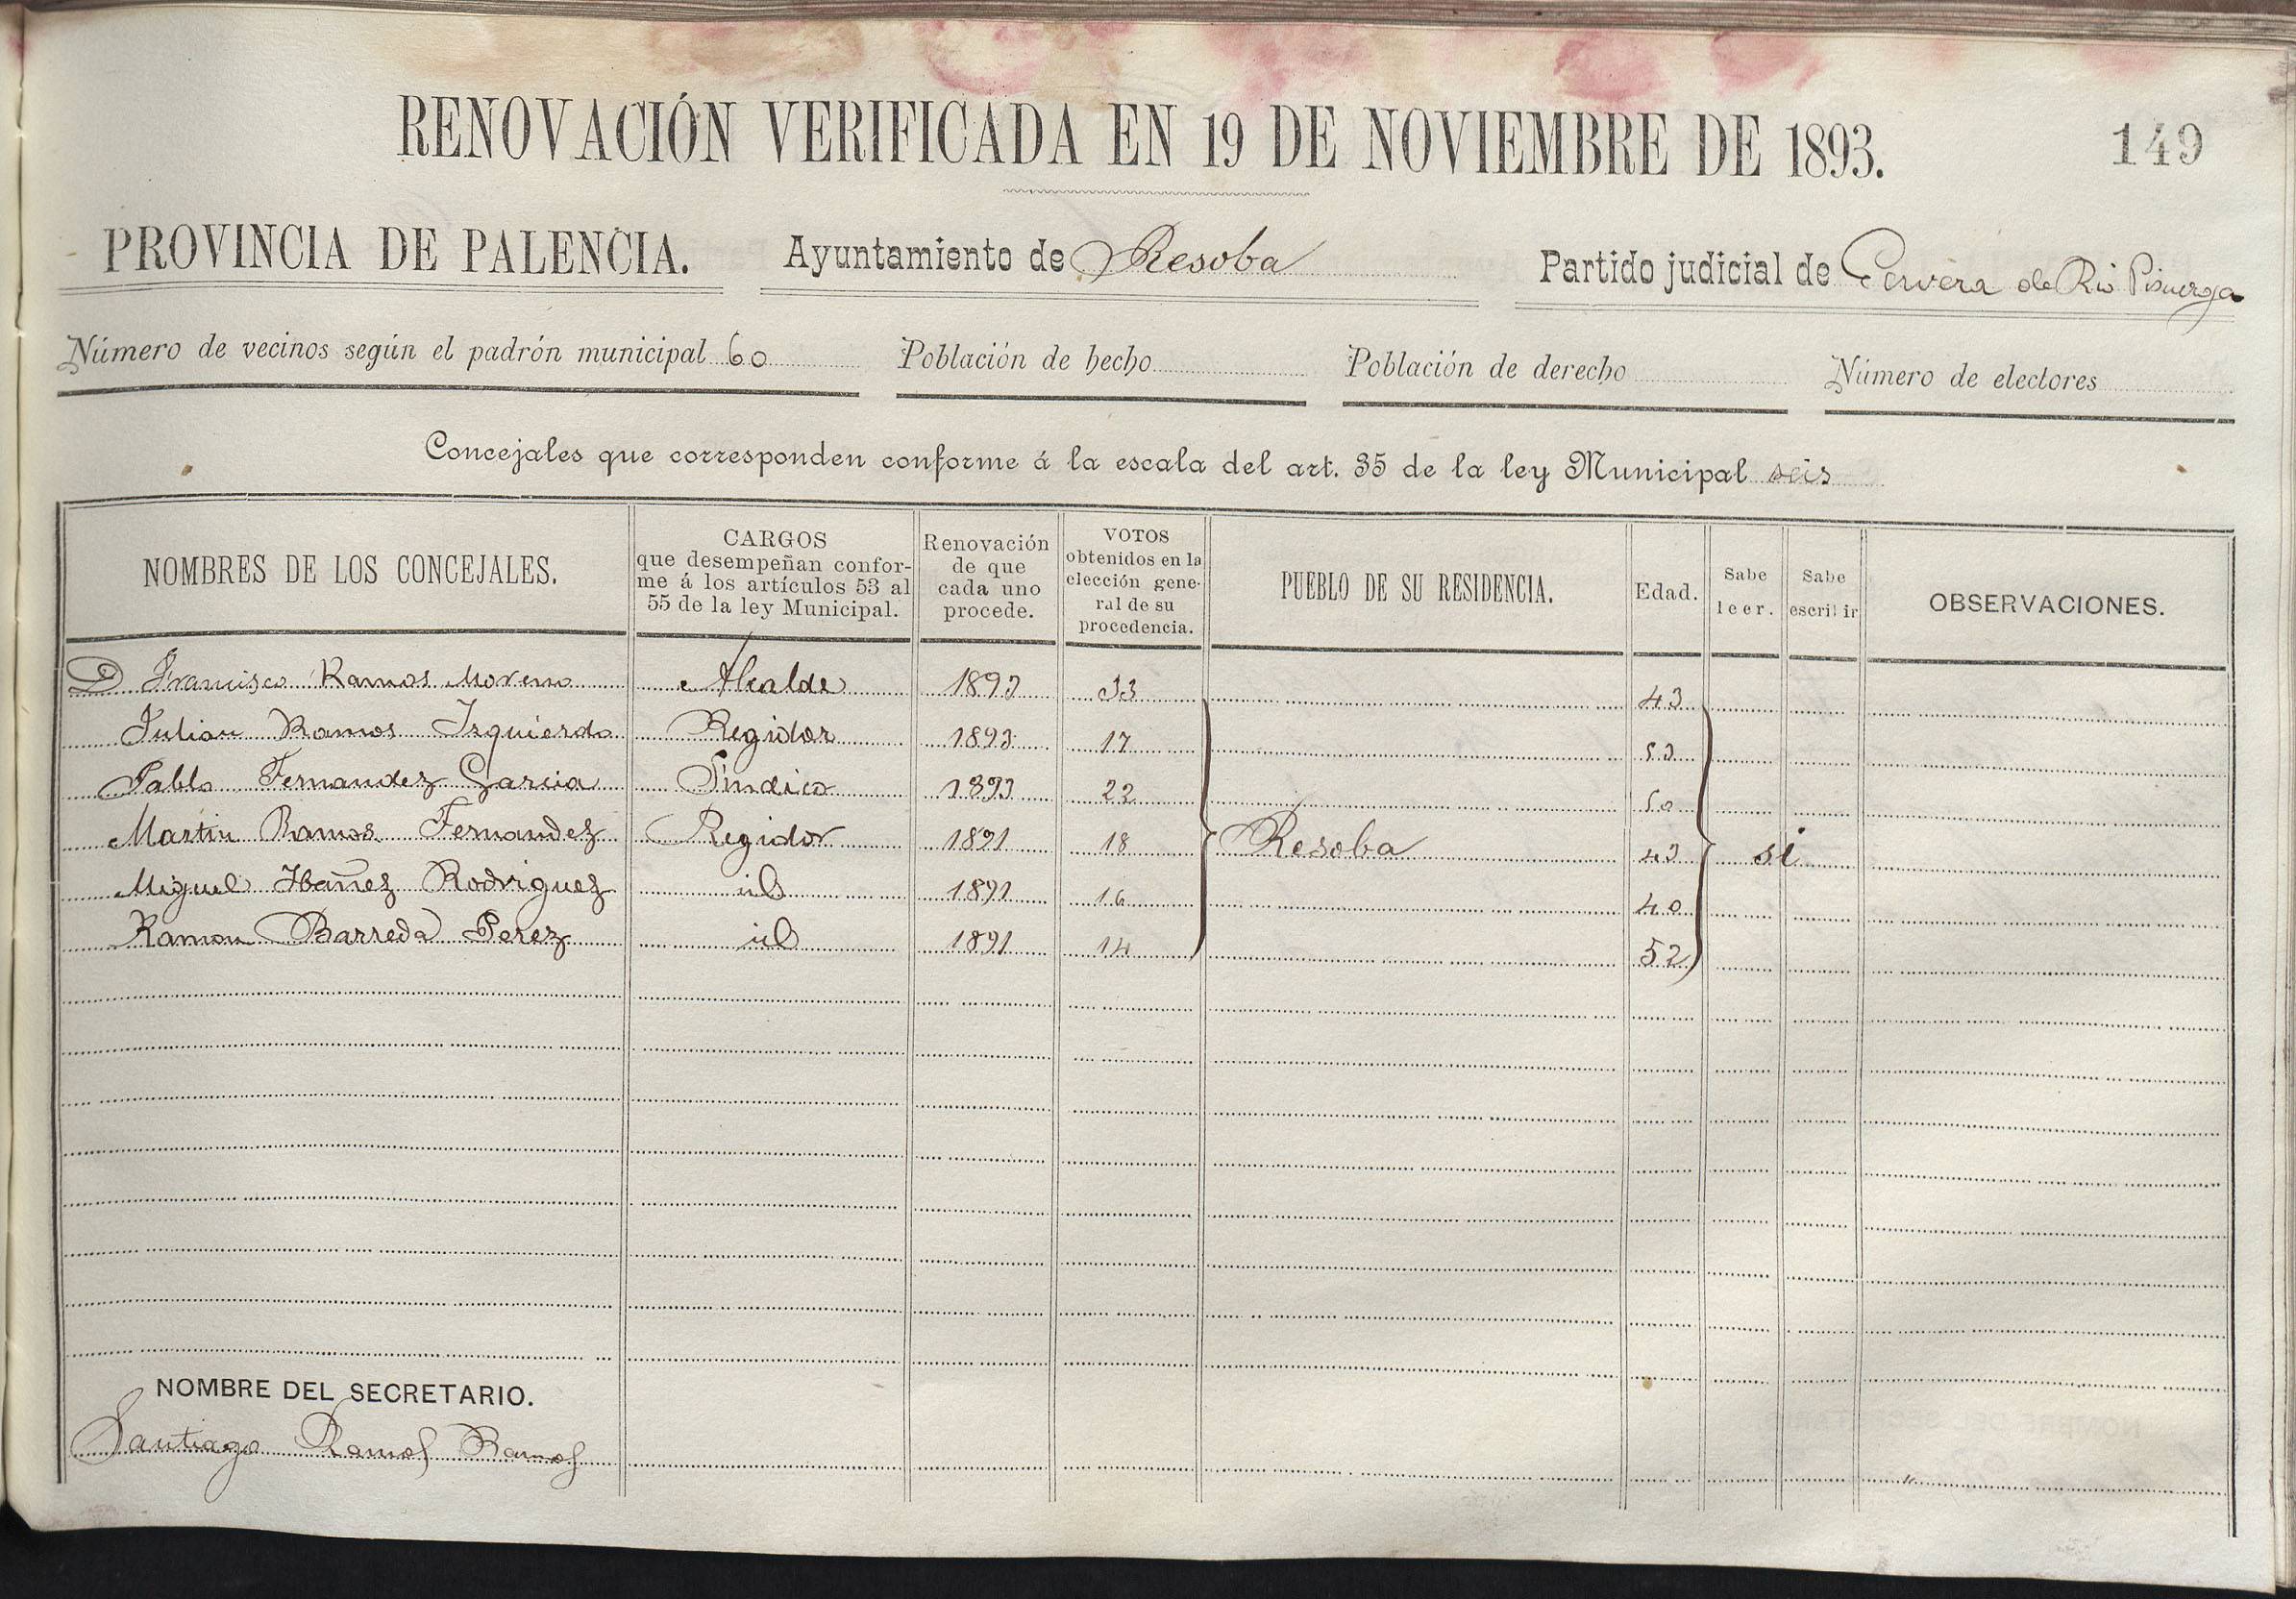 RENOVACIÓN VERIFICADA EN 19 DE NOVIEMBRE DE 1893. 149
PROVINCIA DE PALENCIA. Ayuntamiento de Resoba Partido judicial de Cervera de Rio Pisuerga
Número de vecinos según el padrón municipal 60 Población de hecho Población de derecho Número de electores
Concejales que corresponden conforme á la escala del art. 35 de la ley Municipal seis
NOMBRES DE LOS CONCEJALES.
CARGOS
que desempeñan confor-
me á los artículos 53 al
55 de la ley Municipal.
Renovación
de que
cada uno
procede.
VOTOS
obtenidos en la
elección gene-
ral de su
procedencia.
PUEBLO DE SU RESIDENCIA.
Edad.
Sabe
leer.
Sabe
escribir
OBSERVACIONES.
D Francisco Ramos Moreno Alcalde 1893 33 43
Julian Ramos Izquierdo Regidor 1893 17 53
Pablo Fernandez Garcia Sindico 1893 22 50
Martin Ramos Fernandez Regidor 1891 18 Resoba 43 si
Miguel Ibañez Rodriguez id 1891 16 40
Ramon Barreda Perez id 1891 14 52
NOMBRE DEL SECRETARIO.
Santiago Ramos Ramos